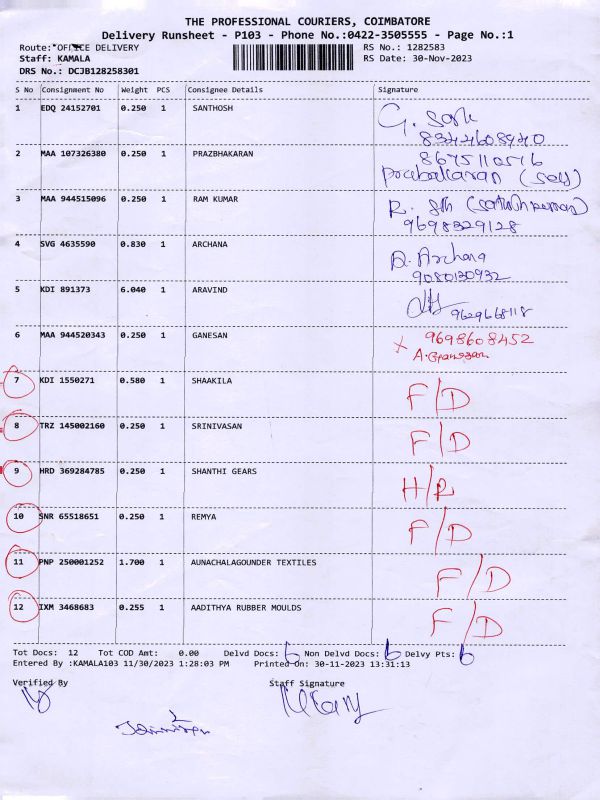 THE PROFESSIONAL COURIERS, COIMBATORE
Delivery Runsheet - P103 - Phone No.:0422-3505555 - Page No.:1
Route:*OFFICE DELIVERY RS No.: 1282583
Staff: KAMALA RS Date: 30-Nov-2023
DRS No.: DCJB128258301
S No Consignment No Weight PCS Consignee Details Signature
1 EDQ 24152701 0.250 1 SANTHOSH
8344608940
2 MAA 107326380 0.250 1 PRAZBHAKARAN 8675110576
Prabakaran (Self)
3 MAA 944515096 0.250 1 RAM KUMAR
9698329128
4 SVG 4635590 0.830 1 ARCHANA A. Archana
9080130932
5 KDI 891373 6.040 1 ARAVIND 9629668118
6 MAA 944520343 0.250 1 GANESAN X 9698608452
A. Ganesan
7 KDI 1550271 0.580 1 SHAAKILA F/D
8 TRZ 145002160 0.250 1 SRINIVASAN F/D
9 HRD 369284785 0.250 1 SHANTHI GEARS H/R
10 SNR 65518651 0.250 1 REMYA F/D
11 PNP 250001252 1.700 1 AUNACHALAGOUNDER TEXTILES F/D
12 IXM 3468683 0.255 1 AADITHYA RUBBER MOULDS F/D
Tot Docs: 12 Tot COD Amt: 0.00 Delvd Docs: 6 Non Delvd Docs: 6 Delvy Pts: 6
Entered By :KAMALA103 11/30/2023 1:28:03 PM Printed On: 30-11-2023 13:31:13
Verified By Staff Signature